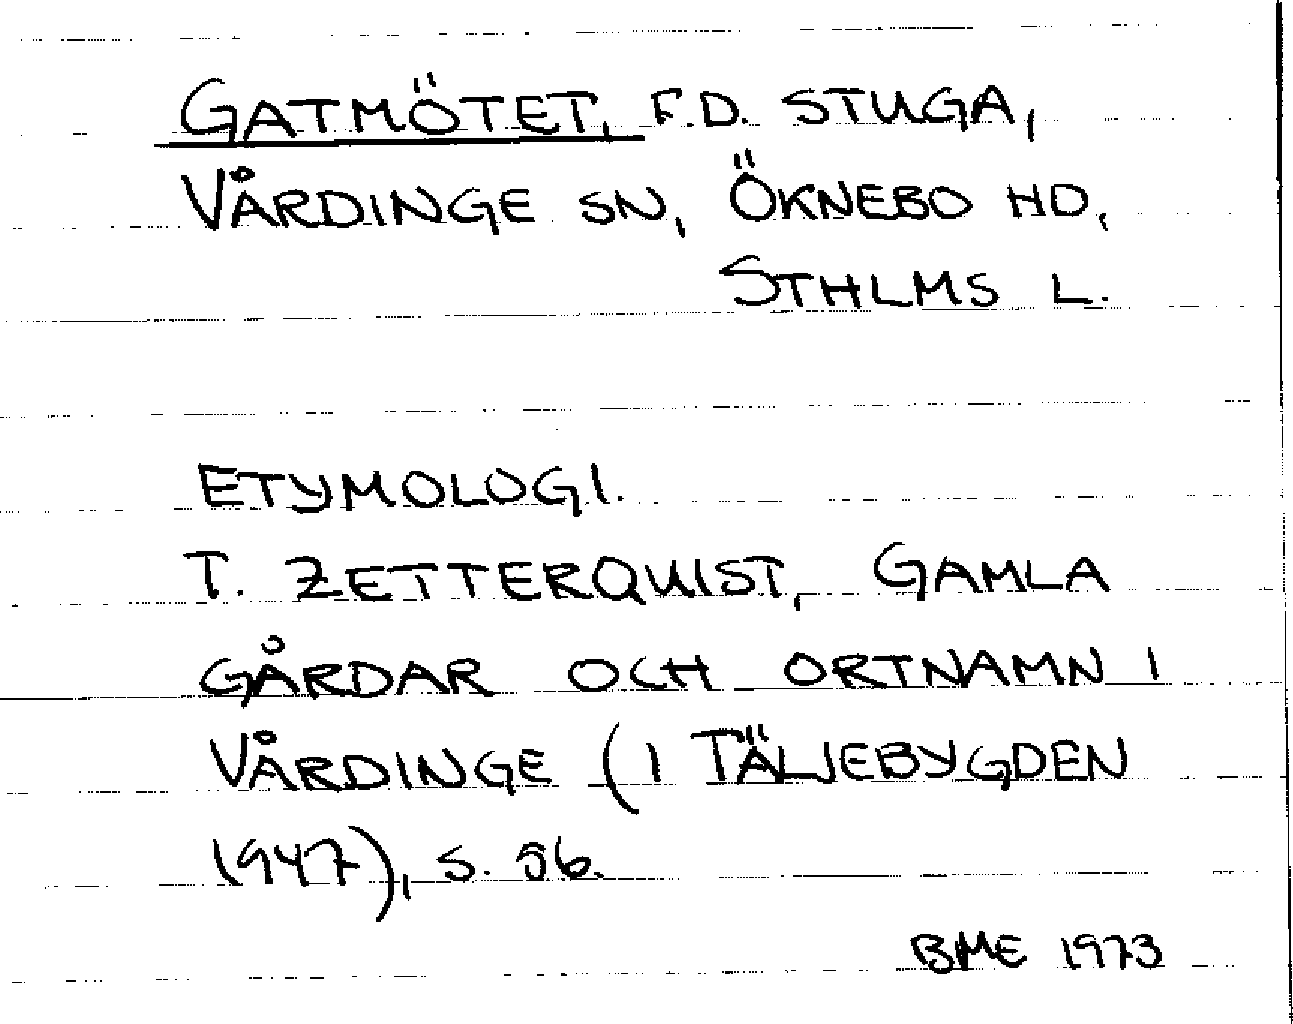 GATMÖTET, F.D. STUGA,
VÅRDINGE SN, ÖKNEBO HD,
STHLMS L.
ETYMOLOGI.
T. ZETTERQUIST, GAMLA
GÅRDAR OCH ORTNAMN I
VÅRDINGE (I TÄLJEBYGDEN
1947), S. 56.
BME 1973